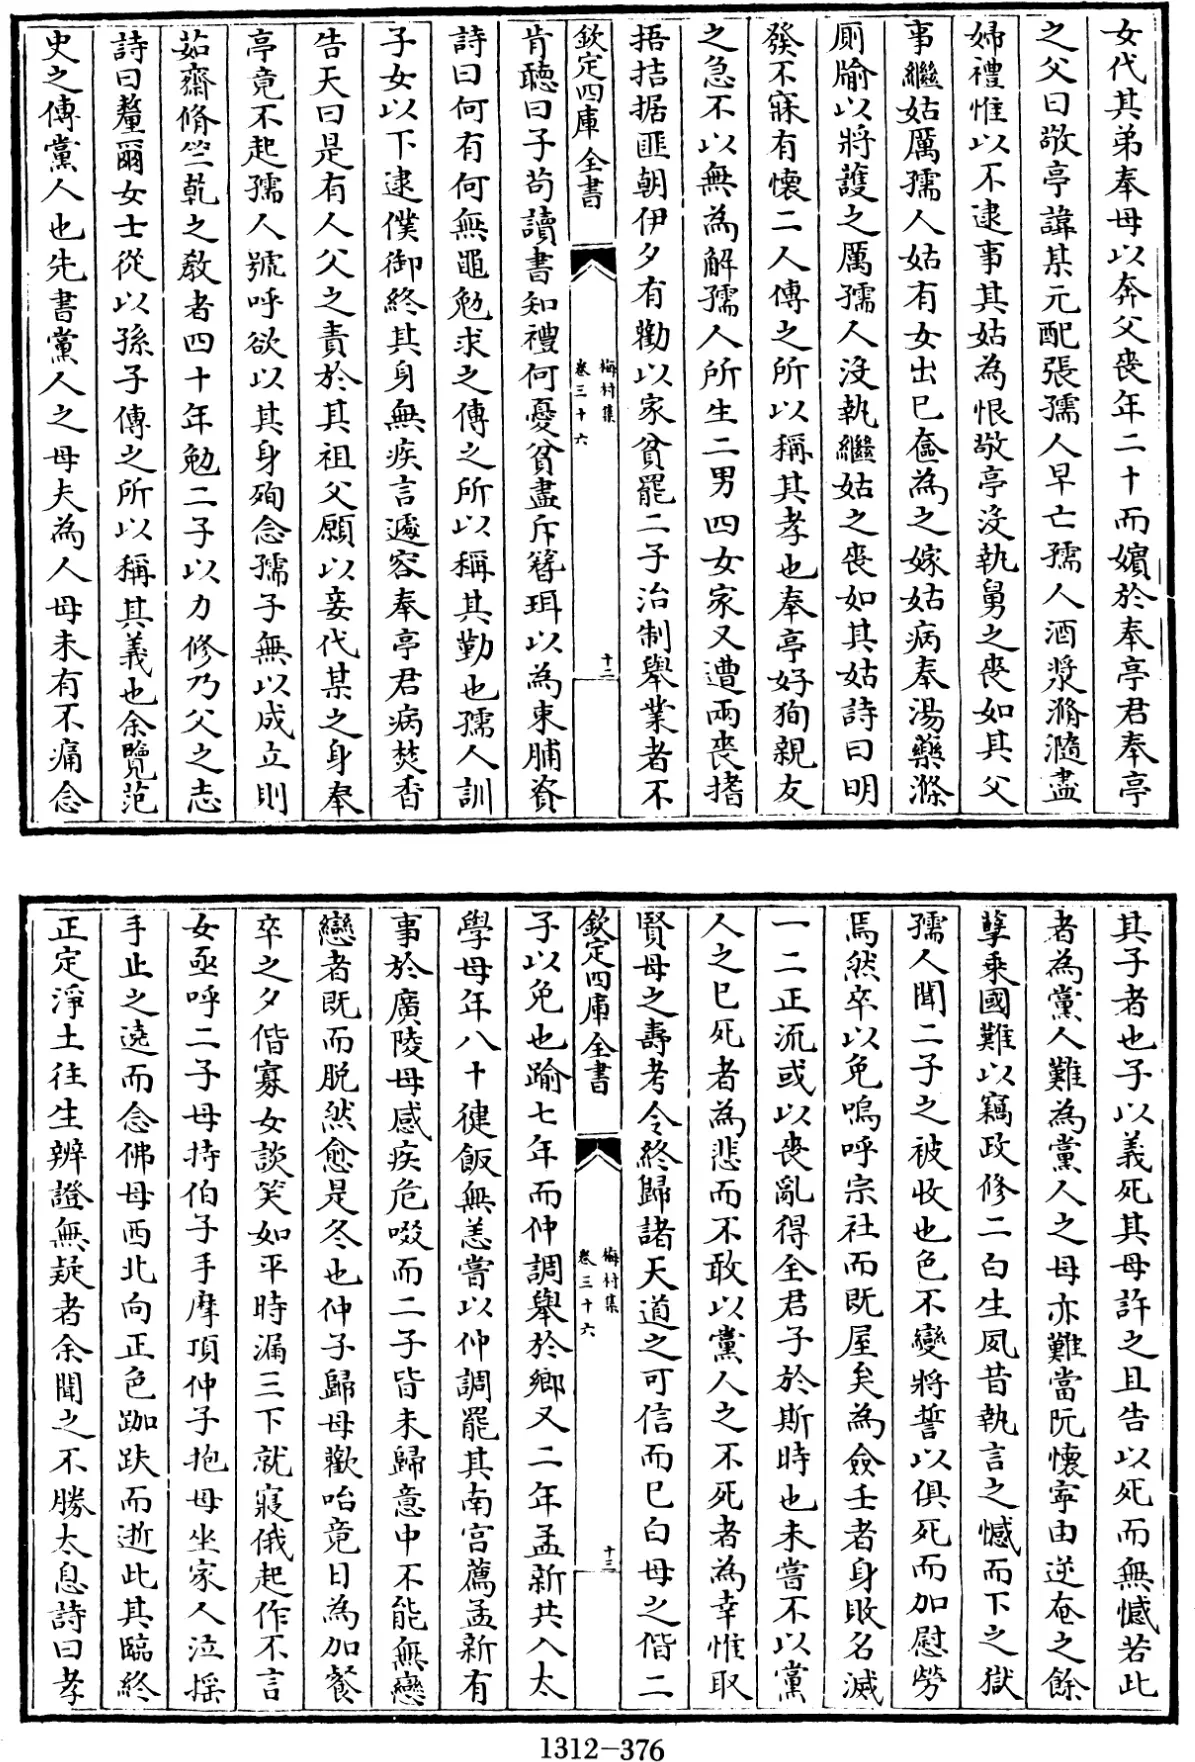 女代其弟奉母以奔父喪年二十而嬪於奉亭君奉亭
之父曰敬亭諱某元配張孺人早亡孺人酒漿滫瀡盡
婦禮惟以不逮事其姑為恨敬亭沒執舅之喪如其父
事繼姑厲孺人姑有女出已奩為之嫁姑病奉湯藥滌
厠牏以將護之厲孺人沒執繼姑之喪如其姑詩曰明
發不寐有懷二人傳之所以稱其孝也奉亭好狥親友
之急不以無為解孺人所生二男四女家又遭兩喪撦
捂拮据匪朝伊夕有勸以家貧罷二子治制舉業者不
欽定四庫全書
梅村集
卷三十六
十二
肯聽曰子茍讀書知禮何憂貧盡斥簪珥以為束脯資
詩曰何有何無黽勉求之傳之所以稱其勤也孺人訓
子女以下逮僕御終其身無疾言遽容奉亭君病焚香
告天曰是有人父之責於其祖父願以妾代某之身奉
亭竟不起孺人號呼欲以其身殉念孺子無以成立則
茹齋脩竺乾之教者四十年勉二子以力修乃父之志
詩曰釐爾女士從以孫子傳之所以稱其義也余覽范
史之傳黨人也先書黨人之母夫為人母未有不痛念
其子者也子以義死其母許之且告以死而無憾若此
者為黨人難為黨人之母亦難當阮懷寧由逆奄之餘
孽乗國難以竊政修二白生夙昔執言之憾而下之獄
孺人聞二子之被收也色不變將誓以俱死而加慰勞
焉然卒以免嗚呼宗社而既屋矣為僉壬者身敗名滅
一二正流或以喪亂得全君子於斯時也未嘗不以黨
人之已死者為悲而不敢以黨人之不死者為幸惟取
賢母之壽考令終歸諸天道之可信而已白母之偕二
欽定四庫全書
梅村集
卷三十六
十三
子以免也踰七年而仲調舉於鄉又二年孟新共入太
學母年八十健飯無恙嘗以仲調罷其南宮薦孟新有
事於廣陵母感疾危啜而二子皆未歸意中不能無戀
戀者既而脫然愈是冬也仲子歸母歡咍竟日為加餐
卒之夕偕寡女談笑如平時漏三下就寢俄起作不言
女亟呼二子母持伯子手摩頂仲子抱母坐家人泣揺
手止之遶而念佛母西北向正色跏趺而逝此其臨終
正定淨土往生辨證無疑者余聞之不勝太息詩曰孝
1312-376